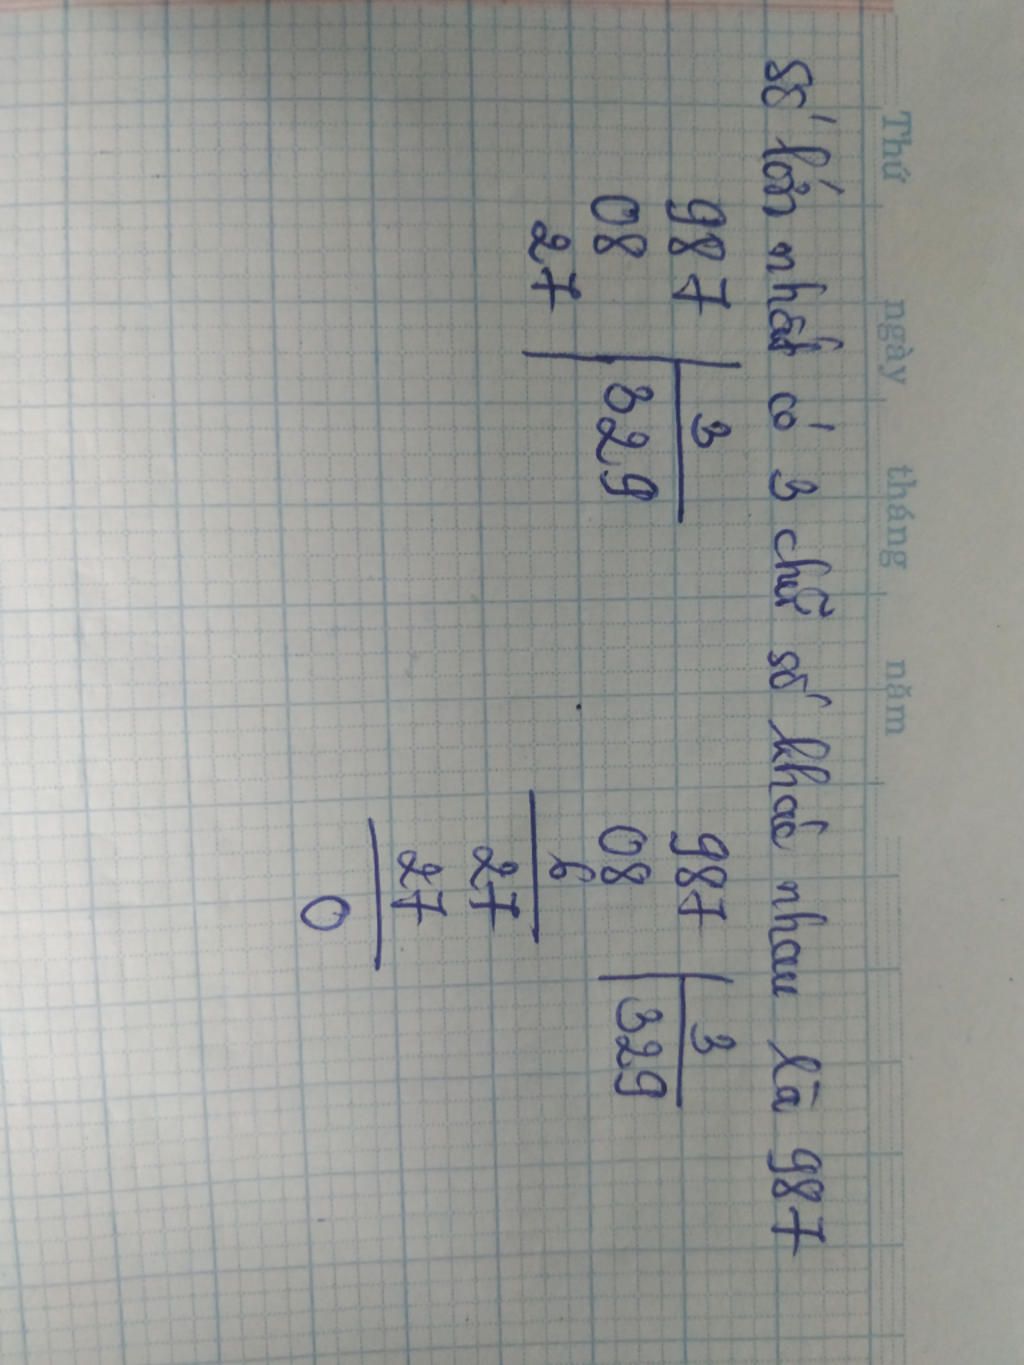 Thứ ngày tháng năm
số lớn nhất có 3 chữ số khác nhau là 987
987 3
08 329
27
987 3
08 329
6
27
27
0